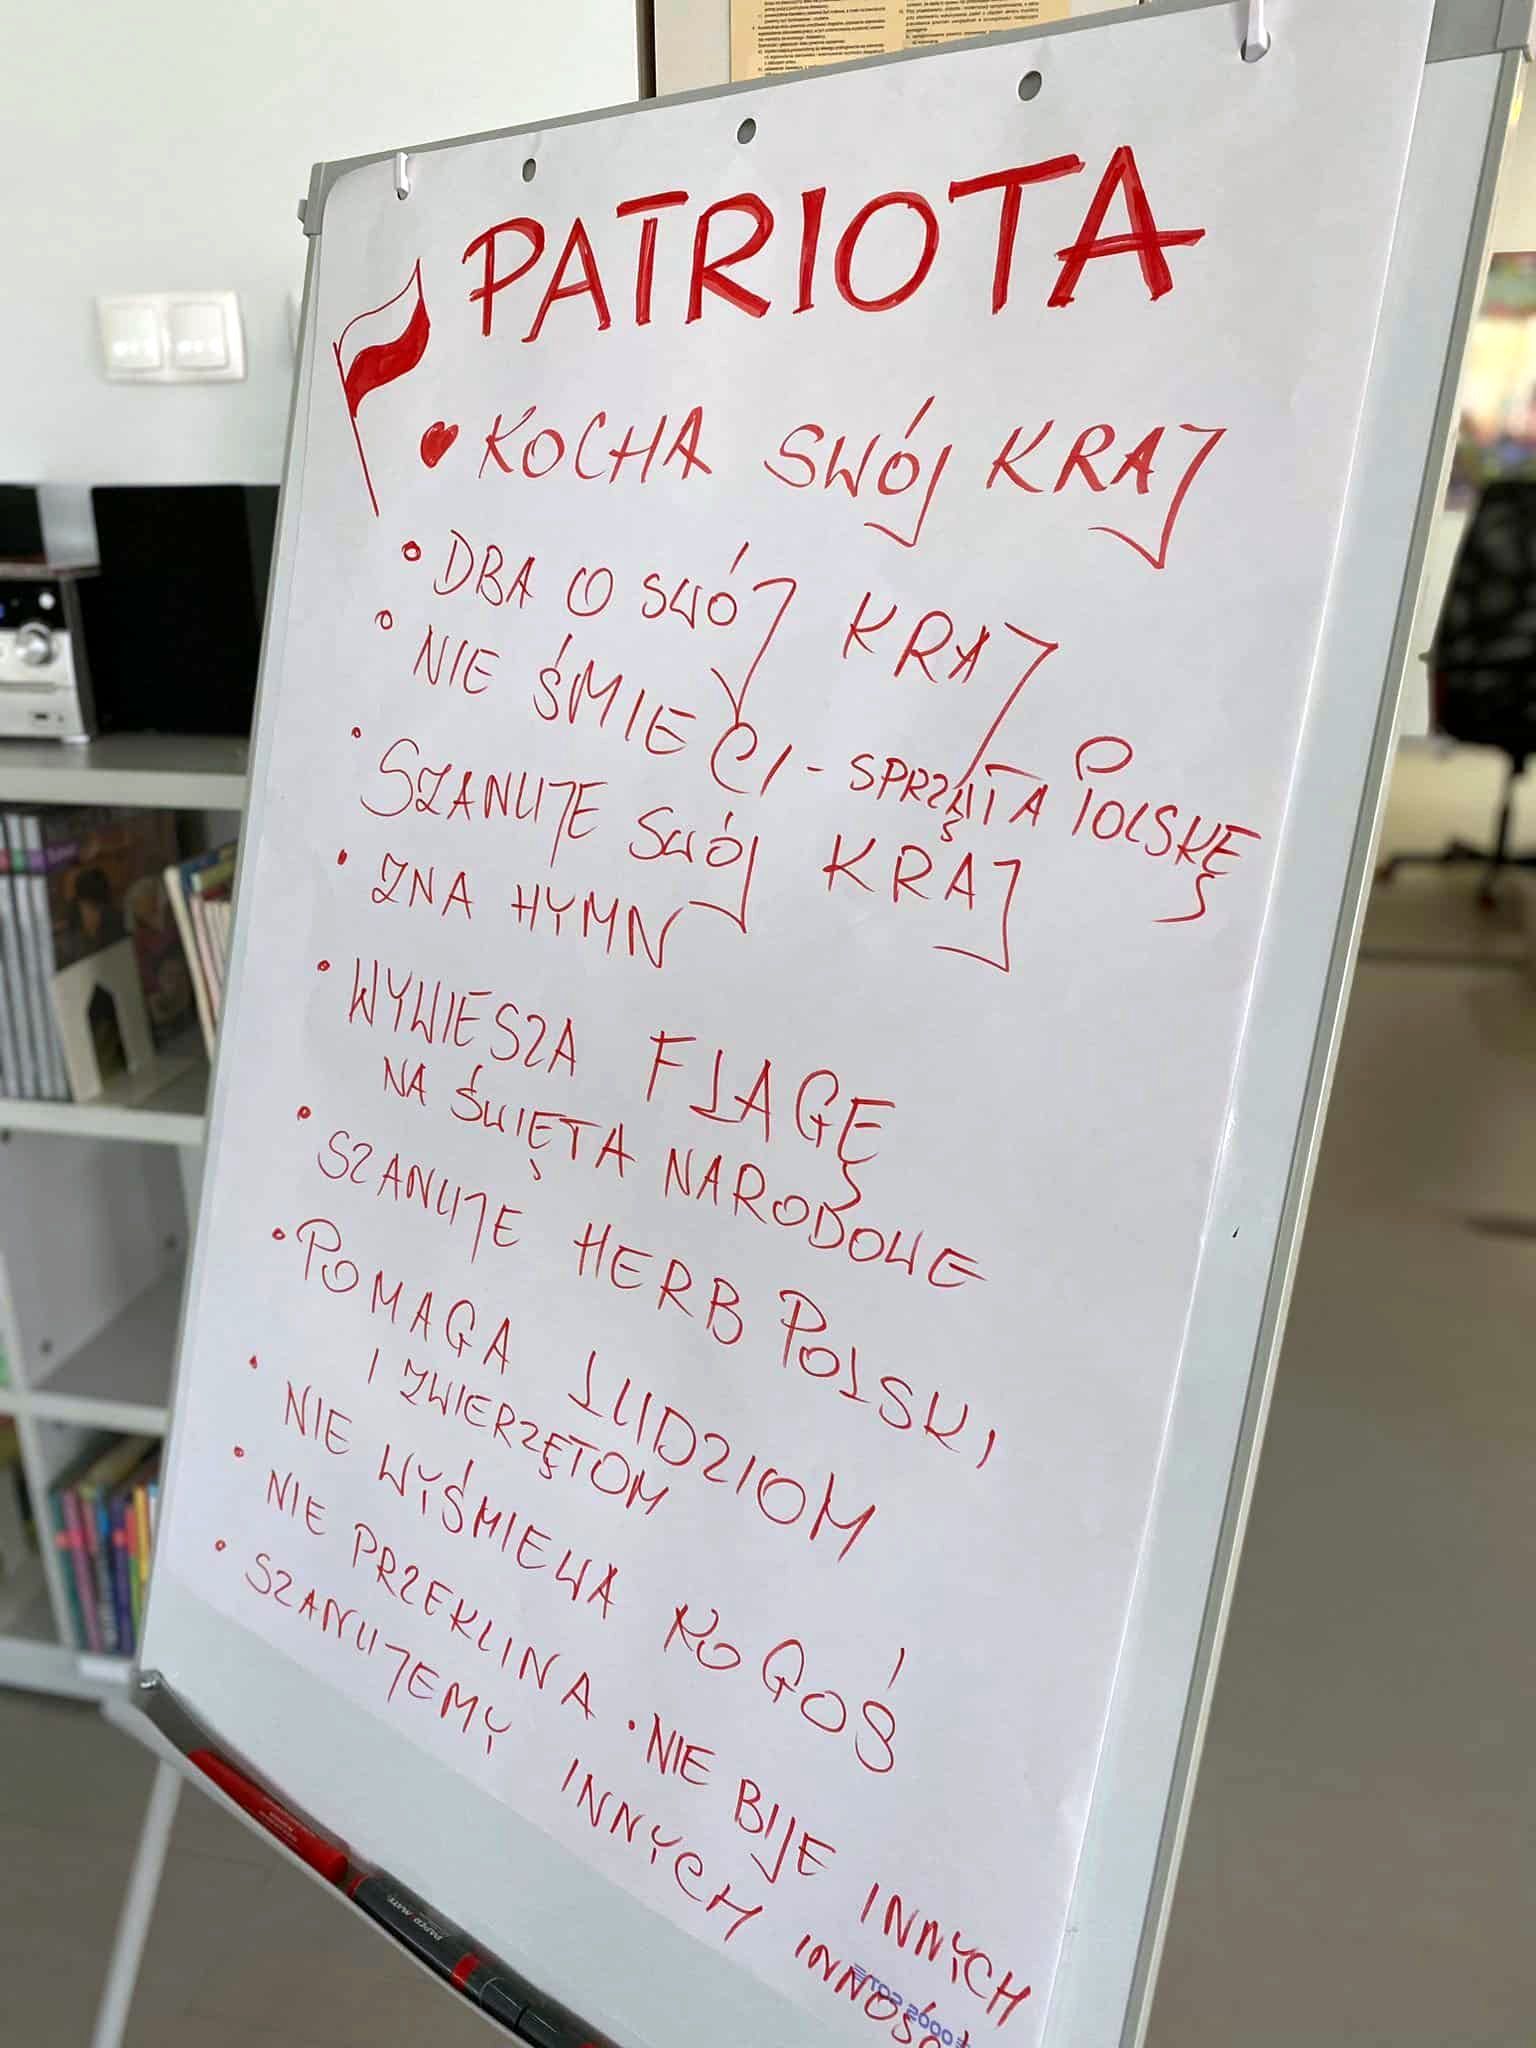 PATRIOTA
KOCHA SWÓJ KRAJ
• DBA O SWÓJ KRAJ
• NIE ŚMIECI - SPRZĄTA POLSKĘ
• SZANUJE SWÓJ KRAJ
• ZNA HYMN
• WYWIESZA FLAGĘ
NA ŚWIĘTA NARODOWE
• SZANUJE HERB POLSKI
• POMAGA LUDZIOM
I ZWIERZĘTOM
• NIE WYŚMIEWA KOGOŚ
• NIE PRZEKLINA • NIE BIJE INNYCH
• SZANUJEMY INNYCH INNOŚĆ
TOP 2000